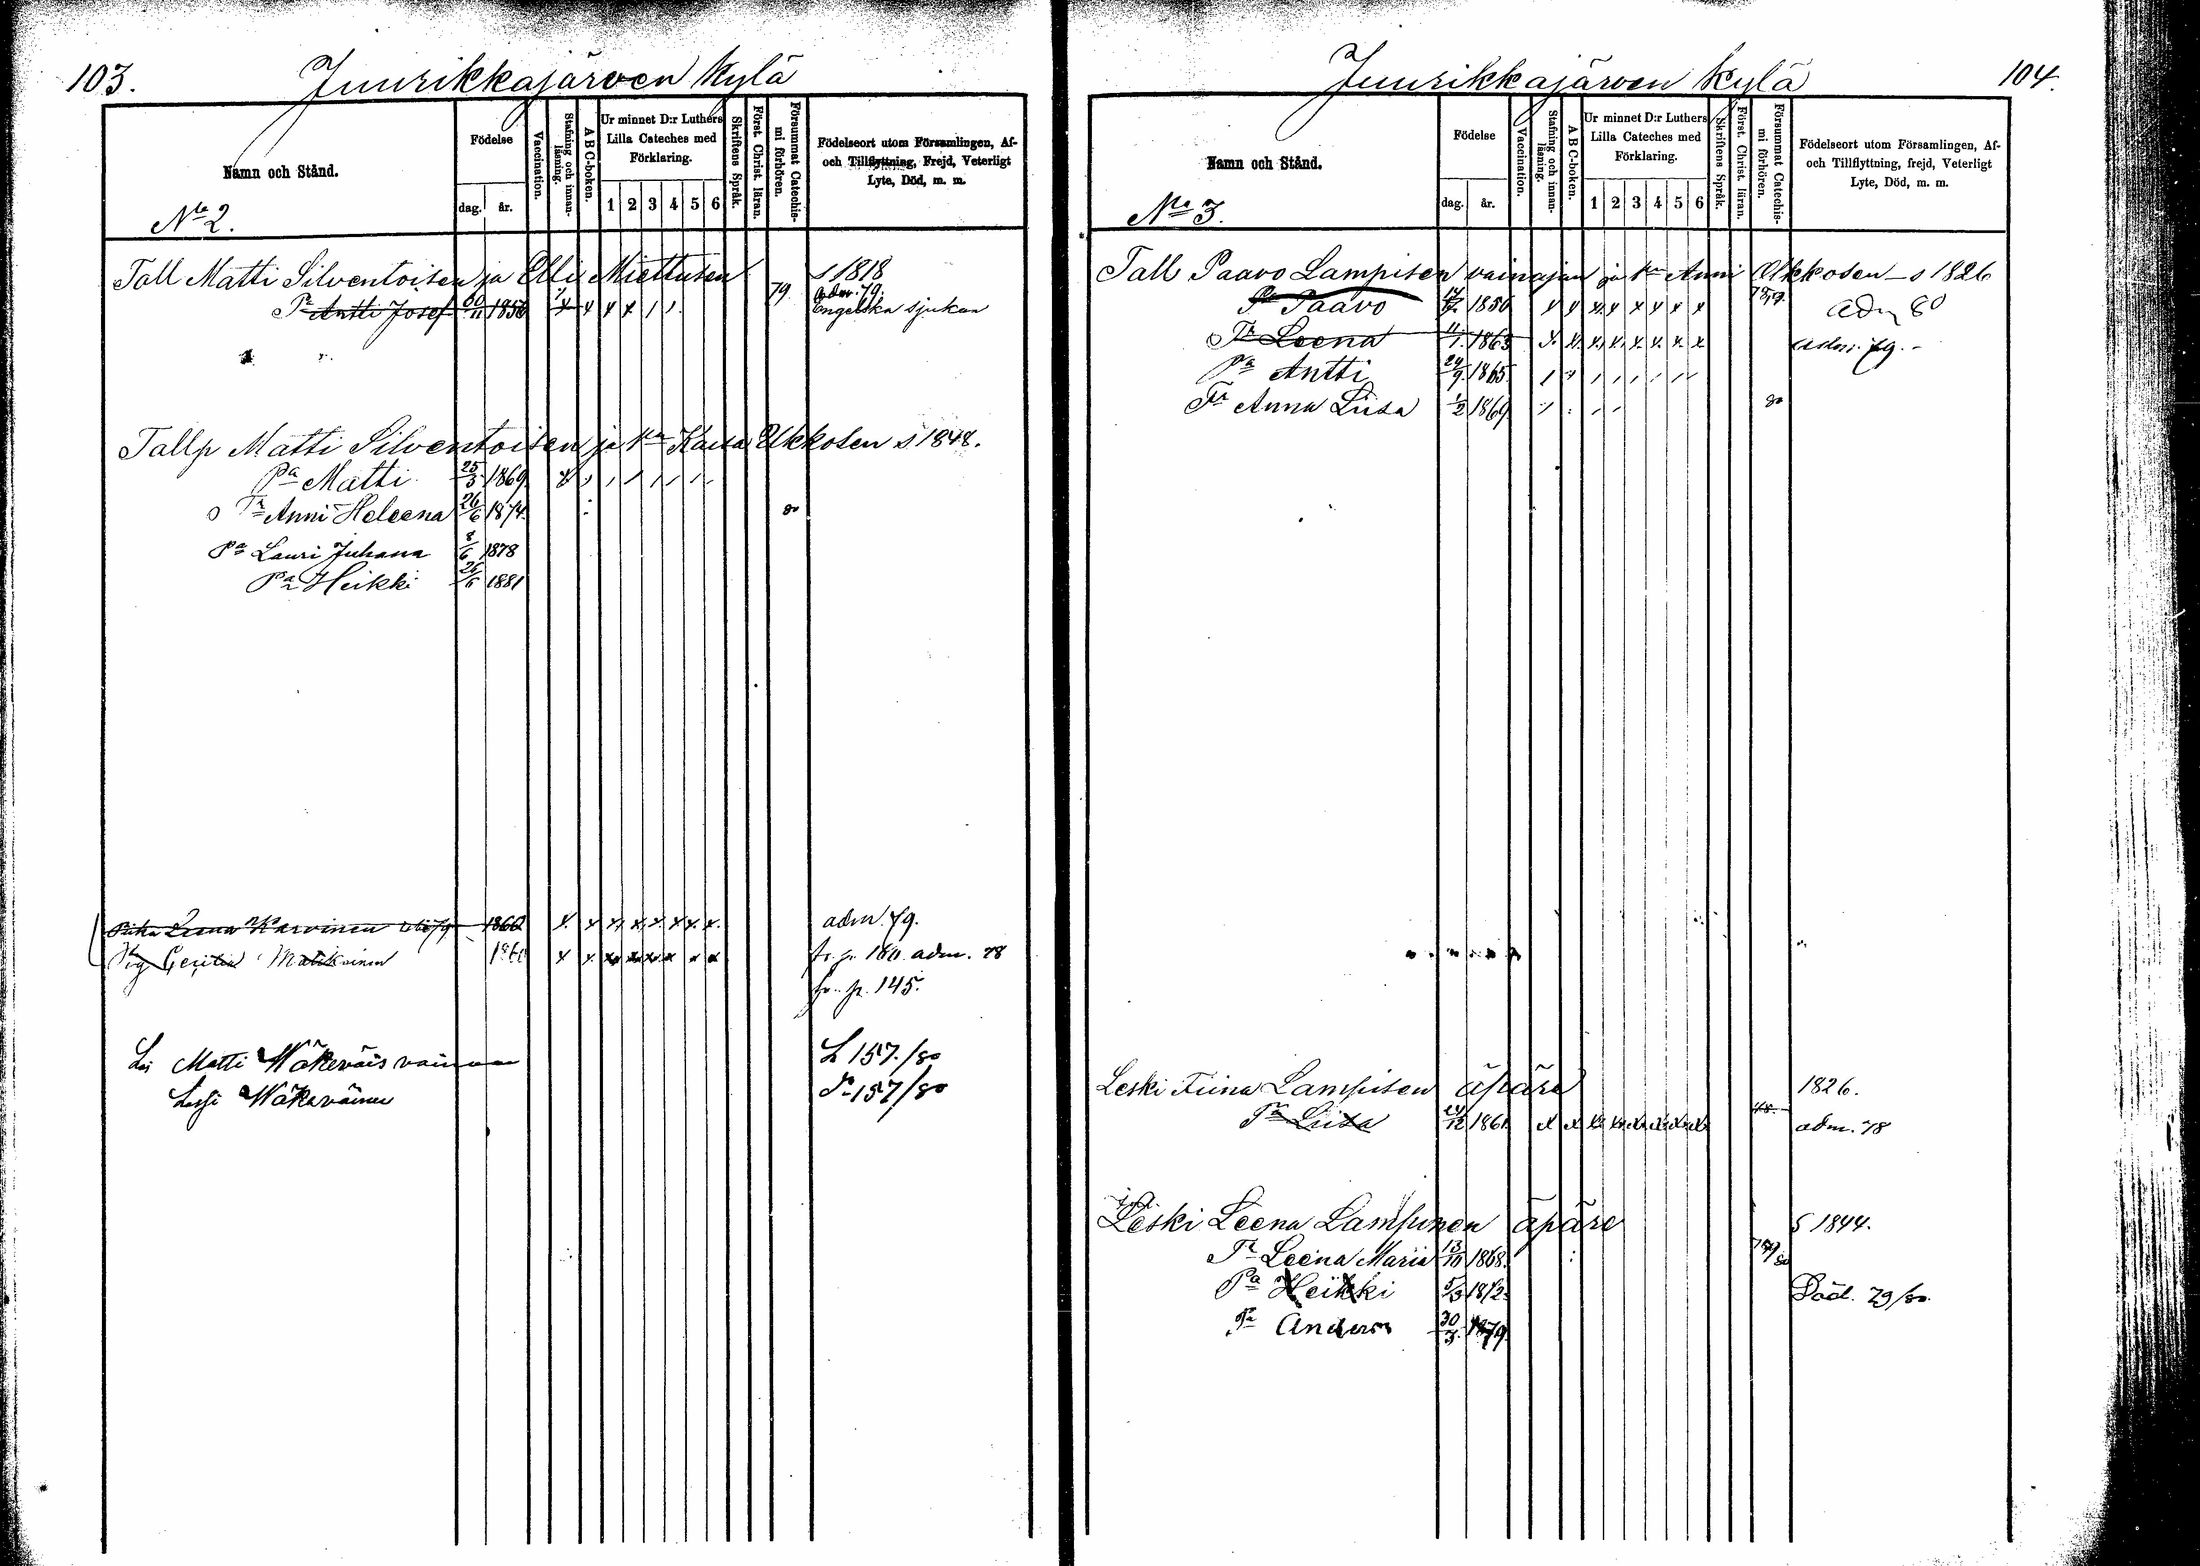 103.
Juurikkajärven Kylä
Namn och Stånd.
Födelse
dag.
år.
Vaccination.
Stafning och innan-
läsning.
A B C-boken.
Ur minnet D:r Luthers
Lilla Cateches med
Förklaring.
1 2 3 4 5 6
Skriftens Språk.
Först. Christ. läran.
Försummat Catechis-
mi förhören.
Födelseort utom Församlingen, Af-
och Tillflyttning, Frejd, Veterligt
Lyte, Död, m. m.
No 2.
Tall Matti Silventoisen ja Elli Miettusen s 1818
Pa Antti Josef 1850 79 adm. 79.
Engelska sjukan
Tallp Matti Silventoisen ja va Kaisa Ukkosen s 1848.
Pa Matti 25/3 1869
o Tr Anni Heleena 26/6 1874 80
Pa Lauri Juhana 8/6 1878
Pa Heikki 26/6 1881
Leena Karvinen 1860 adm. 79.
186 fr. p. 160. adm. 78
fr. p. 145.
Loi Matti Wäkeväis L 157./80
Leski Wäkeväinen 157/80
104.
Juurikkajärven Kylä
Namn och Stånd.
Födelse
dag.
år.
Vaccination.
Stafning och innan-
läsning.
A B C-boken.
Ur minnet D:r Luthers
Lilla Cateches med
Förklaring.
1 2 3 4 5 6
Skriftens Språk.
Först. Christ. läran.
Försummat Catechis-
mi förhören.
Födelseort utom Församlingen, Af-
och Tillflyttning, frejd, Veterligt
Lyte, Död, m. m.
No 3.
Tall Paavo Lampisen vainajan ja va Anni Ukkosen s 1826
Pa Paavo 1856 adm 80
o Tr Leena 11/1. 1863 adm. 79.
Pa Antti 24/9 1865
Tr Anna Liisa 1/2 1869 80
Leski Fiina Lampisen äpäre 1826.
Tr Liisa 24/12 1861 adm. 78
Leski Leena Lampinen äpäre s 1844.
Tr Leena Maria 13/10 1868
Pa Heikki 5/3 1872 Död. 79/80.
Pa Anders 30/3 1879